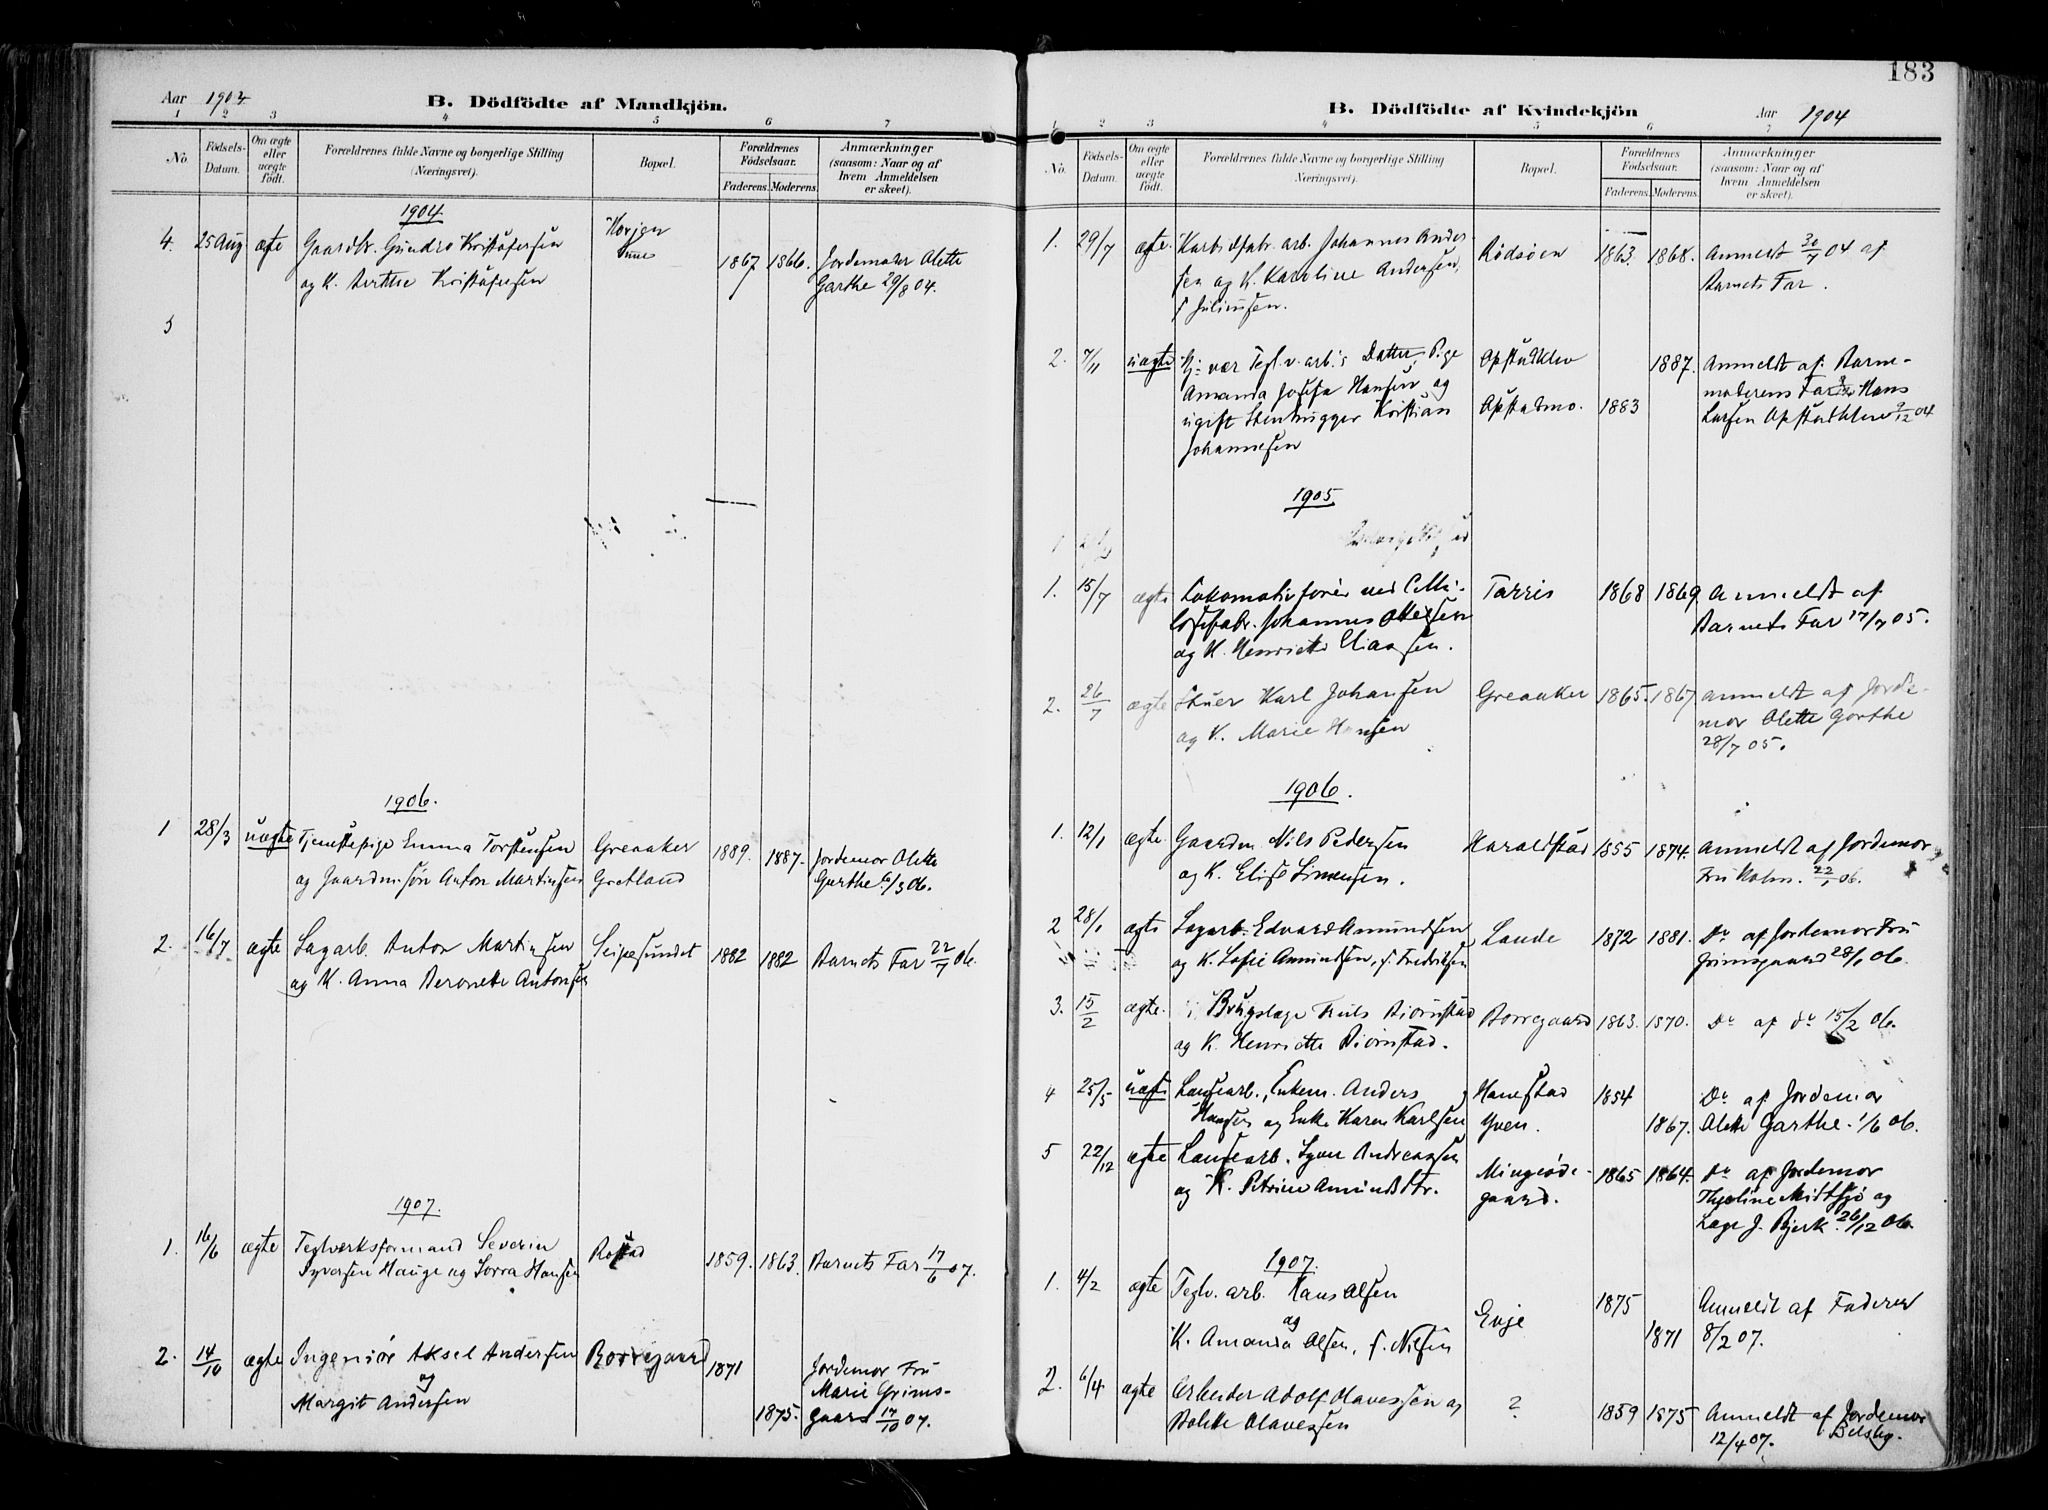 183
Aar 1904
B. Dödfödte af Mandkjön.
1 2 3 4 5 6 7
No
Födsels-Datum.
Om ægte eller uægte födt.
Forældrenes fulde Navne og borgerlige Stilling (Næringsvei).
Bopæl.
Forældrenes Födselsaar.
Faderens. Moderens.
Anmærkninger (saasom: Naar og af hvem Anmeldelsen er skeet).
1904.
4. 25 Aug ægte Gaardbr. Gundro Kristofersen
og K. Kristofersen 1867 1866. Jordemoder Olette
Garthe 29/8 04.
5
1906.
1 28/3 uægte Tjenestepige Emma Torstensen Greaaker 1889. 1887. Jordemor Olette
og Gaardm. søn Anton Martinsen Gretland Garthe 6/3 06.
2. 16/7 ægte Sagarb. Anton Martinsen Seipesundet 1882 1882 Barnets Far 22/7 06.
og K. Anna Beronete Antonsen
1907.
1. 16/6 ægte Teglverksformand Severin Rostad 1859. 1863. Barnets Far 17/6 07.
Syversen Hauge og Hansen
2. 14/10 ægte Ingeniør Aksel Andersen Borregaard 1871 Jordemor Fru
og Marie Grims-
Margit Andersen 1875. gaard 17/10 07.
B. Dödfödte af Kvindekjön
Aar 1904
1 2 3 4 5 6 7
No.
Födsels-Datum.
Om ægte eller uægte födt.
Forældrenes fulde Navne og borgerlige Stilling (Næringsvei).
Bopæl.
Forældrenes Födselsaar.
Faderens. Moderens.
Anmærkninger (saasom: Naar og af hvem Anmeldelsen er skeet).
1. 29/7 ægte. Karbidfabr. arb. Johannes Ander- Rødsøen 1863. 1868. Anmeldt 30/7 04 af
sen og K. Karoline Andersen, Barnets Far.
f Juliussen.
2. 7/11 uægte Hj: vær Teglv. arb:s Datter, Pige Opstadklev 1887. Anmeldt af Barne-
Amanda Josefa Hansen og moderens Far Hans
ugift Stenhugger Kristian Opstadmo. 1883 Larsen Opstadklev 9/12 04
Johannesen
1905.
1. 15/7 ægte Lokomotivfører ved Cellu- Tarris 1868 1869. Anmeldt af
losefabr. Johannes Ottersen Barnets Far 17/7 05.
og K. Henriette Eliassen.
2. 26/7 ægte Stuer Karl Johansen Greaaker 1865. 1867 Anmeldt af Jorde-
og K. Marie Hansen mor Olette Garthe
28/7 05.
1906.
1. 12/1 ægte. Gaardm Nils Pedersen Haraldstad 1855 1874. Anmeldt af Jordemor
og K. Elise Simensen. Fru Holm. 22/1 06.
2 28/1 ægte Sagarb. Edvard Amundsen Lande 1872 1881. Do af Jordemor Fru
og K. Sofie Amundsen, f. Fredriksen Grimsgaard 28/1 06.
3. 15/2 ægte. Brugslæge Truls Bjørnstad Borregaard 1863. 1870. Do af do 15/2 06.
og K. Henriette Bjørnstad.
4 25/5 uægte Landsearb., Enkem. Anders Hanestad 1854 Do af Jordemor
Hansen og Enke Karen Karlsen Yven. 1867. Olette Garthe. 1/6 06.
5 22/12 ægte Landsearb. Syver Andreassen Mingeøde- 1865 1864. Do af Jordemor
og K. Petrine Amundsdtr. gaard. Thjoline Midtsjø og
Læge J. Bjerk. 26/12 06.
1907.
1. 4/2 ægte Teglv. arb. Hans Olsen Evje 1875 Anmeldt af Faderen
og
K. Amanda Olsen, f. Nilsen 1871 8/2 07.
2. 6/4. ægte Arbeider Adolf Olavessen og ? 1859 1875 Anmeldt af Jordemor
Bolette Olavessen 12/4 07. Belsby.